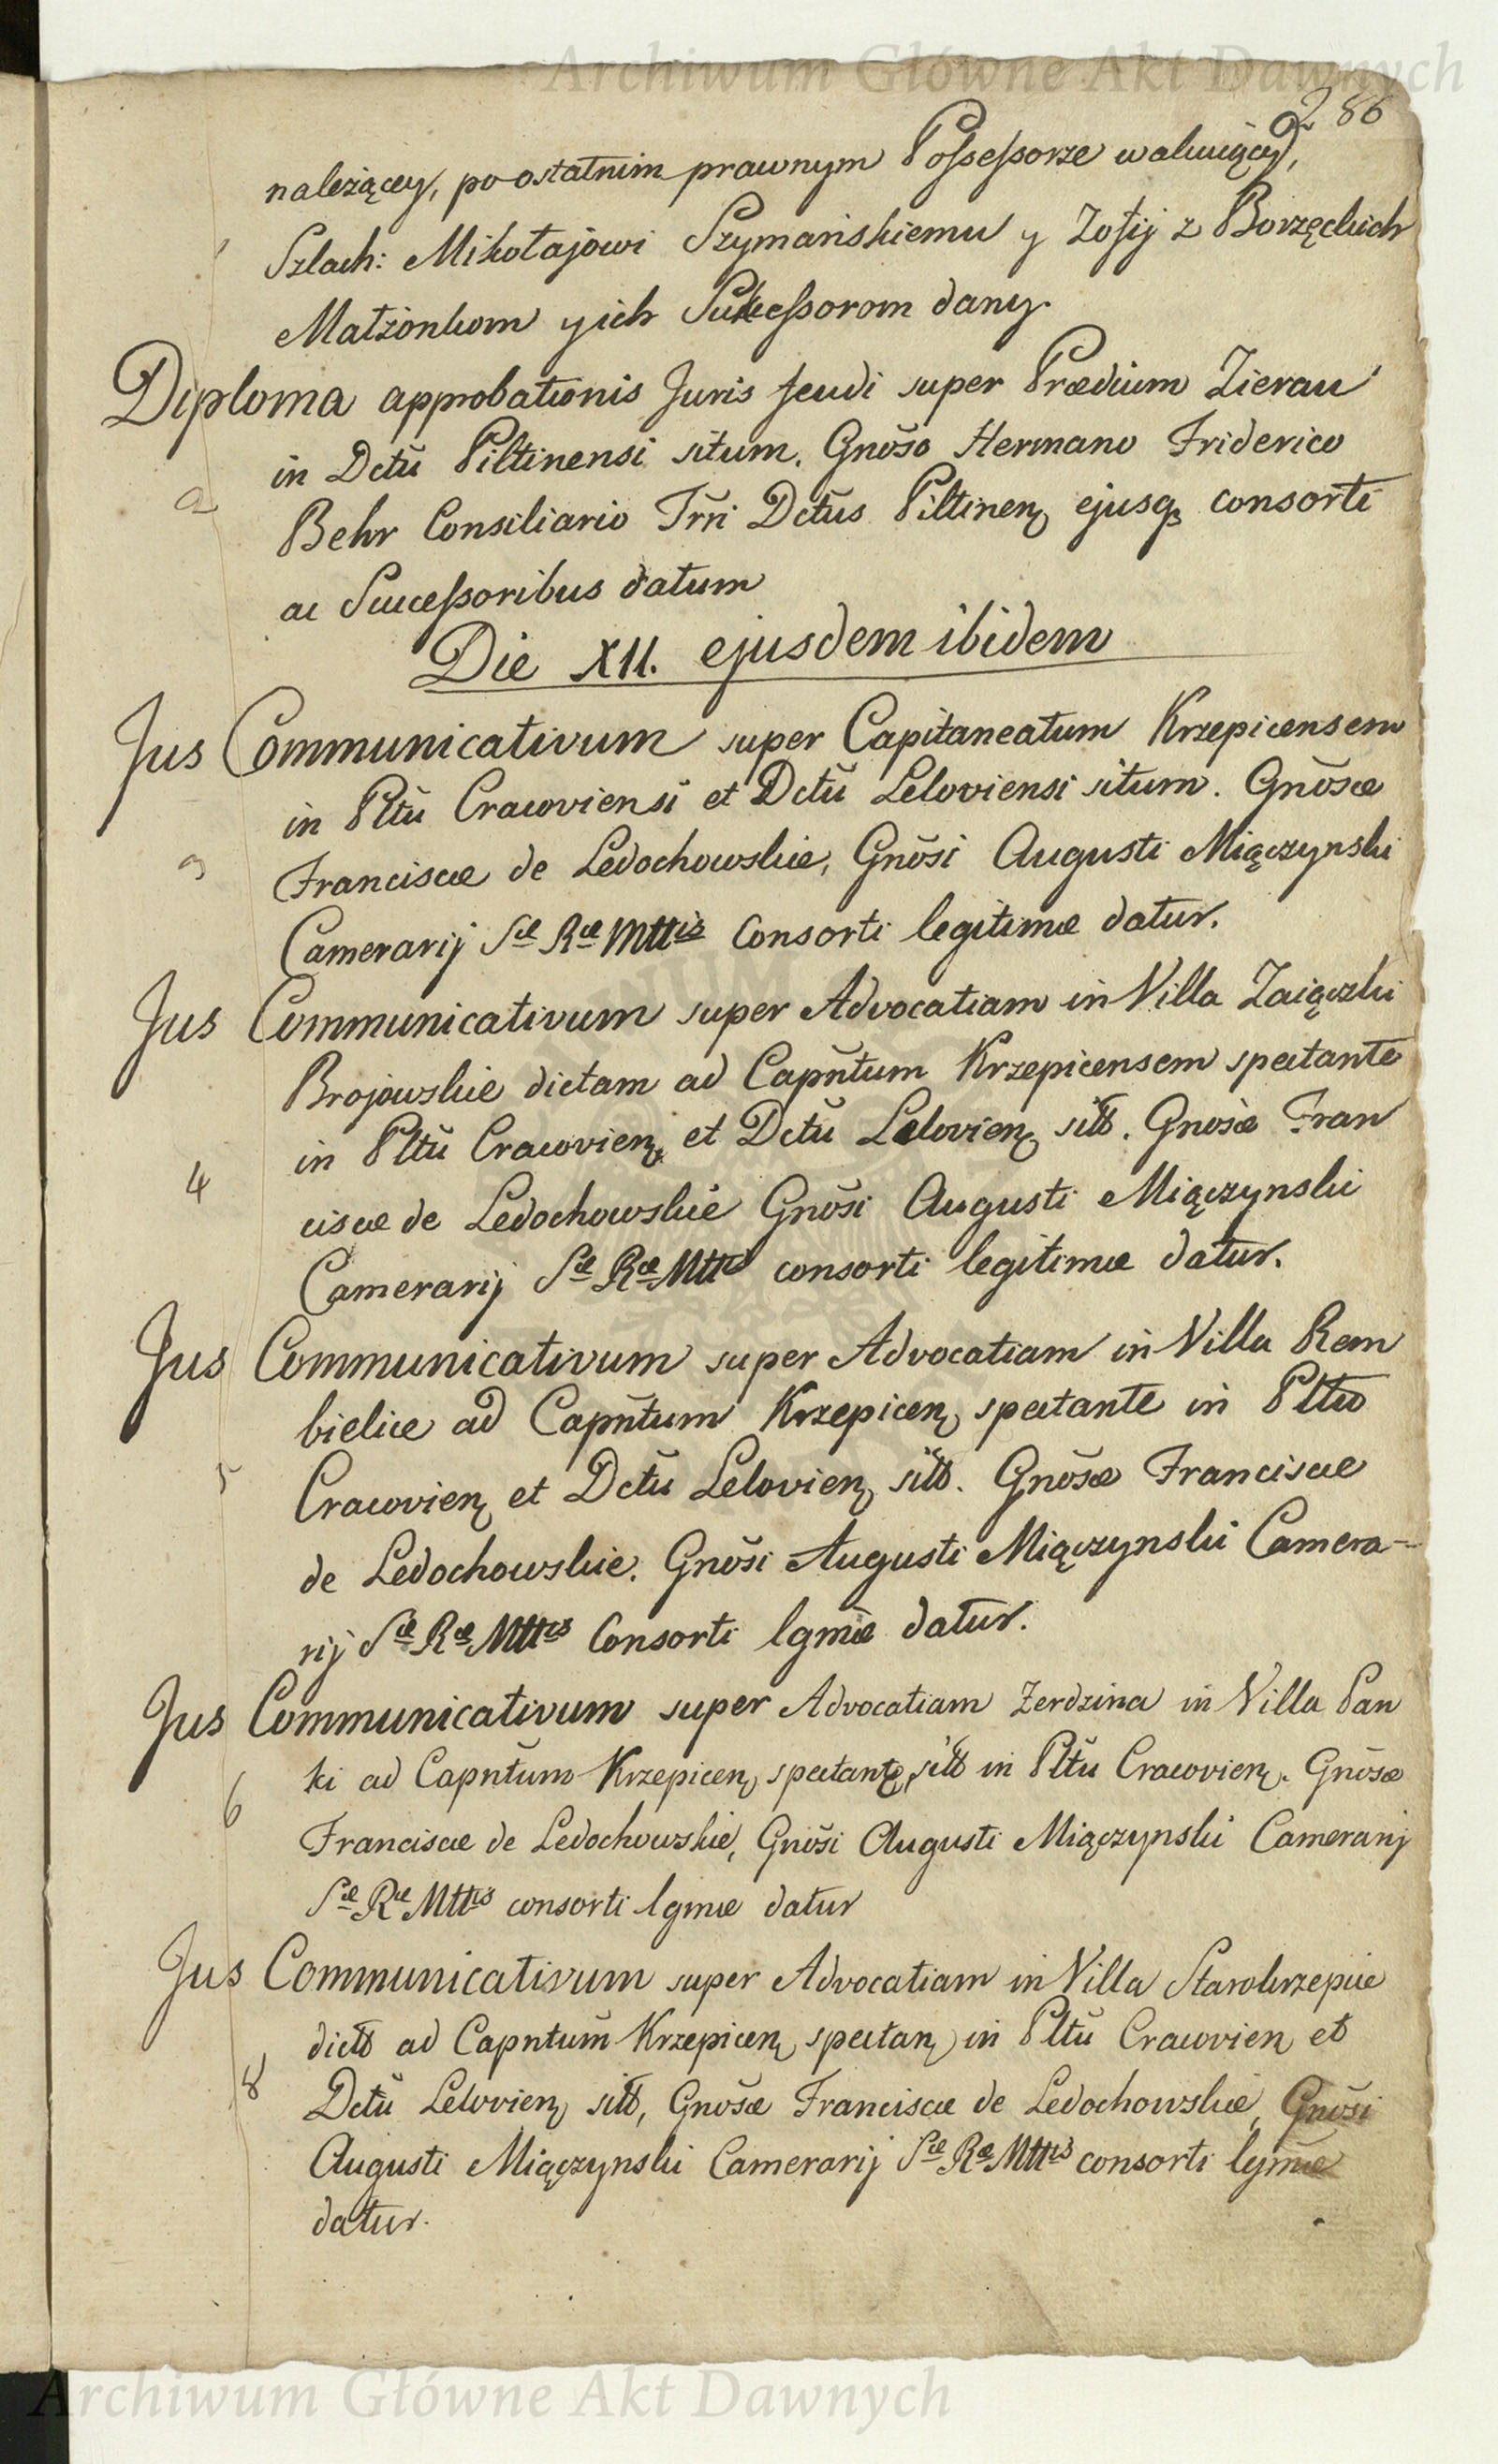 Archiwum Główne Akt Dawnych
286
należącey, po ostatnim prawnym Possessorze wakuiącey,
Szlach: Mikołajowi Szymańskiemu y Zofij z Borzęckich
Małżonkom y ich Sukcessorom dany.
Diploma approbationis Juris feudi super Prædium Zierau
in Dctũ Piltinensi situm. Gnõso Hermano Friderico
2
Behr Consiliario Trrĩ Dctũs Piltinen ejusq consorti
ac Successoribus datum
Die XII. ejusdem ibidem
Jus Communicativum super Capitaneatum Krzepicensem
in Pltũ Cracoviensi et Dctũ Leloviensi situm. Gnõsæ
3
Franciscæ de Ledochowskie, Gnõsi Augusti Miączynski
Camerarij Sæ Ræ Mttis Consorti legitimæ datur.
Jus Communicativum super Advocatiam in Villa Zaiączki
Brojowskie dictam ad Capñtum Krzepicensem spectante
in Pltũ Cracovien et Dctũ Lelovien sitt. Gnosæ Fran
4
ciscæ de Ledochowskie Gnõsi Augusti Miączynski
Camerarij Sæ Ræ Mttis consorti legitimæ datur.
Jus Communicativum super Advocatiam in Villa Rem
bielice ad Capñtum Krzepicen spectante in Pltũ
5
Cracovien et Dctũ Lelovien sitt. Gnõsæ Franciscæ
de Ledochowskie. Gnõsi Augusti Miączynski Camera-
rij Sæ Ræ Mttis Consorti lgmæ datur.
Jus Communicativum super Advocatiam Zerdzina in Villa Pan
ki ad Capntum Krzepicen spectante, sitt in Pltũ Cracovien. Gnõsæ
6
Franciscæ de Ledochowskie, Gnõsi Augusti Miączynski Camerarij
Sæ Ræ Mttis consorti lgmæ datur
Jus Communicativum super Advocatiam in Villa Starokrzepice
dictt ad Capntum Krzepicen spectan in Pltũ Cracovien et
8
Dctũ Lelovien sitt, Gnõsæ Franciscæ de Ledochowskie, Gnõsi
Augusti Miączynski Camerarij Sæ Ræ Mttis consorti lgmæ
datur.
Archiwum Główne Akt Dawnych